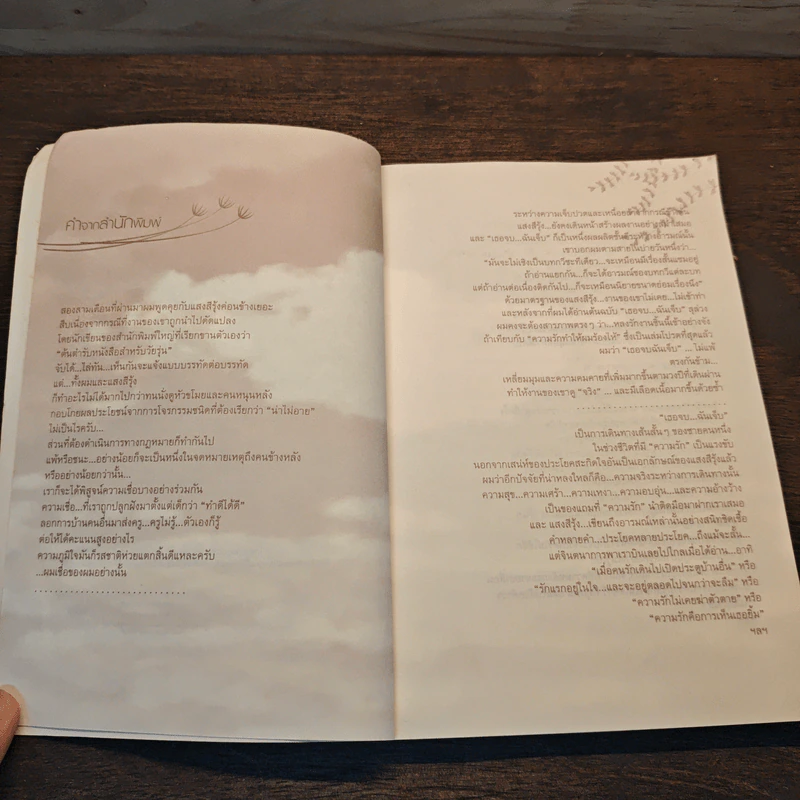 คำจากสำนักพิมพ์
สองสามเดือนที่ผ่านมาผมพูดคุยกับแสงสีรุ้งค่อนข้างเยอะ
สืบเนื่องจากกรณีที่งานของเขาถูกนำไปดัดแปลง
โดยนักเขียนของสำนักพิมพ์ใหญ่ที่เรียกขานตัวเองว่า
"ต้นตำรับหนังสือสำหรับวัยรุ่น"
จับได้...ไล่ทัน...เห็นกันจะแจ้งแบบบรรทัดต่อบรรทัด
แต่...ทั้งผมและแสงสีรุ้ง
ก็ทำอะไรไม่ได้มากไปกว่าทนนั่งดูหัวขโมยและคนหนุนหลัง
กอบโกยผลประโยชน์จากการโจรกรรมชนิดที่ต้องเรียกว่า "น่าไม่อาย"
ไม่เป็นไรครับ...
ส่วนที่ต้องดำเนินการทางกฎหมายก็ทำกันไป
แพ้หรือชนะ...อย่างน้อยก็จะเป็นหนึ่งในจดหมายเหตุถึงคนข้างหลัง
หรืออย่างน้อยกว่านั้น...
เราก็จะได้พิสูจน์ความเชื่อบางอย่างร่วมกัน
ความเชื่อ...ที่เราถูกปลูกฝังมาตั้งแต่เด็กว่า "ทำดีได้ดี"
ลอกการบ้านคนอื่นมาส่งครู...ครูไม่รู้...ตัวเองก็รู้
ต่อให้ได้คะแนนสูงอย่างไร
ความภูมิใจมันก็รสชาติห่วยแตกสิ้นดีแหละครับ
...ผมเชื่อของผมอย่างนั้น
..............................
ระหว่างความเจ็บปวดและเหนื่อยล้าจากกรณี
แสงสีรุ้ง...ยังคงเดินหน้าสร้างผลงานอย่าง
และ "เธอจบ...ฉันเจ็บ" ก็เป็นหนึ่งผลผลิต อารมณ์นั้น
เขาบอกผมตามสายในบ่ายวันหนึ่งว่า...
"มันจะไม่เชิงเป็นบทกวีซะทีเดียว...จะเหมือนมีเรื่องสั้นแซมอยู่
ถ้าอ่านแยกกัน...ก็จะได้อารมณ์ของบทกวีแต่ละบท
แต่ถ้าอ่านต่อเนื่องติดกันไป...ก็จะเหมือนนิยายขนาดย่อมเรื่องนึง"
ด้วยมาตรฐานของแสงสีรุ้ง...งานของเขาไม่เคย...ไม่เข้าท่า
และหลังจากที่ผมได้อ่านต้นฉบับ "เธอจบ...ฉันเจ็บ" ลุล่วง
ผมคงจะต้องสารภาพตรงๆ ว่า...หลงรักงานชิ้นนี้เข้าอย่างจัง
ถ้าเทียบกับ "ความรักทำให้ผมร้องไห้" ซึ่งเป็นเล่มโปรดที่สุดแล้ว
ผมว่า "เธอจบ...ฉันเจ็บ" ... ไม่แพ้
ตรงกันข้าม...
เหลี่ยมมุมและความคมคายที่เพิ่มมากขึ้นตามวงปีที่เดินผ่าน
ทำให้งานของเขาดู "จริง" ... และมีเลือดเนื้อมากขึ้นด้วยซ้ำ
..............................
"เธอจบ...ฉันเจ็บ"
เป็นการเดินทางเส้นสั้นๆ ของชายคนหนึ่ง
ในช่วงชีวิตที่มี "ความรัก" เป็นแรงขับ
นอกจากเสน่ห์ของประโยคสะกิดใจอันเป็นเอกลักษณ์ของแสงสีรุ้งแล้ว
ผมว่าอีกปัจจัยที่น่าหลงใหลก็คือ...ความจริงระหว่างการเดินทางนั้น
ความสุข...ความเศร้า...ความเหงา...ความอบอุ่น...และความอ้างว้าง
เป็นของแถมที่ "ความรัก" นำติดมือมาฝากเราเสมอ
และ แสงสีรุ้ง...เขียนถึงอารมณ์เหล่านั้นอย่างสนิทชิดเชื้อ
คำหลายคำ...ประโยคหลายประโยค...ถึงแม้จะสั้น...
แต่จินตนาการพาเราบินเลยไปไกลเมื่อได้อ่าน...อาทิ
"เมื่อคนรักเดินไปเปิดประตูบ้านอื่น" หรือ
"รักแรกอยู่ในใจ...และจะอยู่ตลอดไปจนกว่าจะลืม" หรือ
"ความรักไม่เคยฆ่าตัวตาย" หรือ
"ความรักคือการเห็นเธอยิ้ม"
ฯลฯ